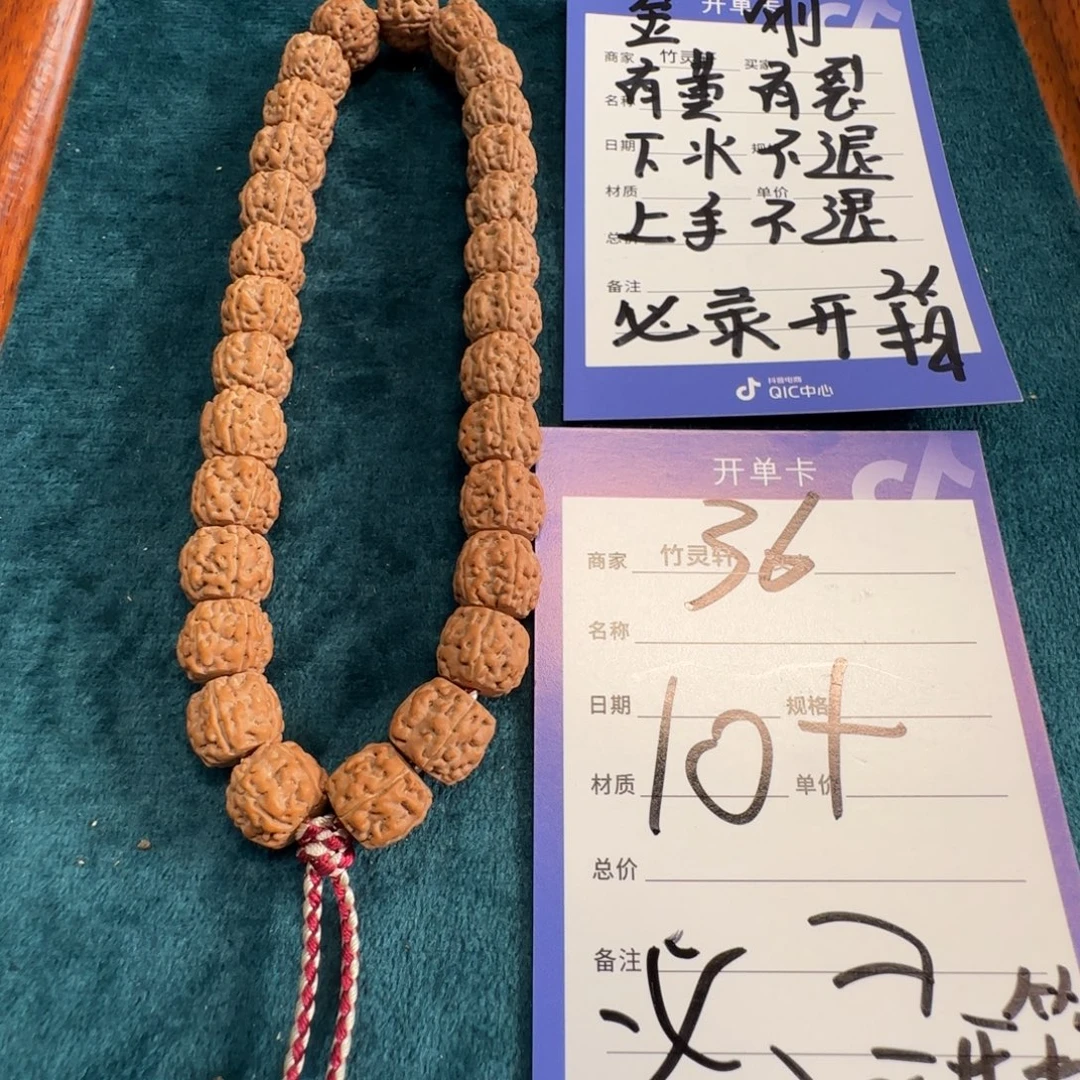 开单卡
金刚
商家 竹灵轩 买家
有董有裂
名称
日期
下水不退
材质 单价
上手不退
备注
必录开箱
抖音电商
QIC中心
开单卡
36
商家 竹灵轩
名称
日期 规格
10+
材质 单价
总价
备注
必